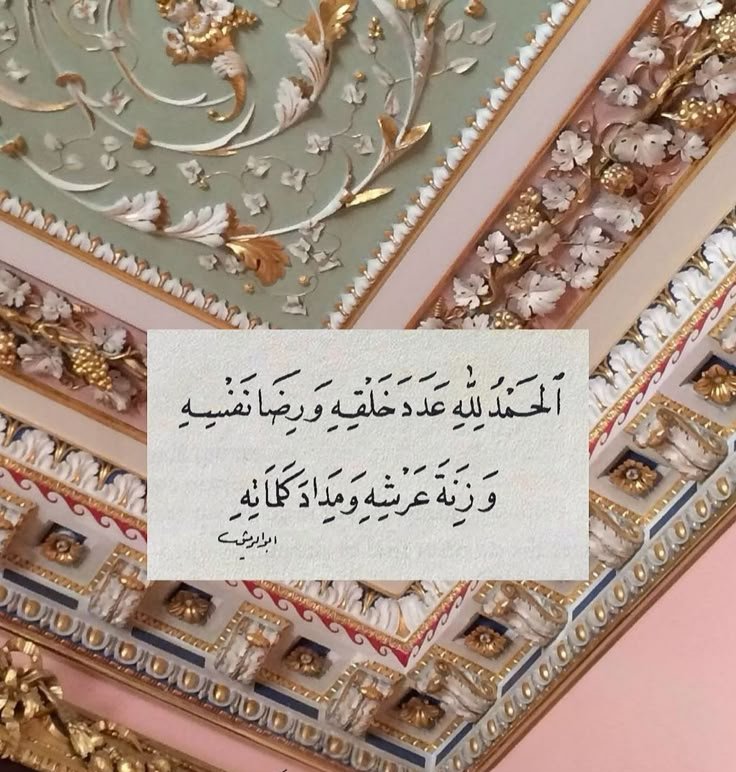 ٱلْحَمْدُ لِلّٰهِ عَدَدَ خَلْقِهِ وَرِضَا نَفْسِهِ
وَزِنَةَ عَرْشِهِ وَمِدَادَ كَلِمَاتِهِ